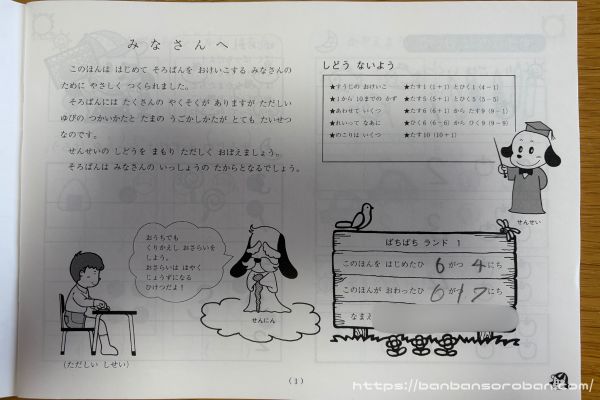 みなさんへ
このほんは はじめて そろばんを おけいこする みなさんの
ために やさしく つくられました。
そろばんには たくさんの やくそくが ありますが ただしい
ゆびの つかいかたと たまの うごかしかたが とても たいせつ
なのです。
せんせいの しどうを まもり ただしく おぼえましょう。
そろばんは みなさんの いっしょうの たからとなるでしょう。
おうちでも
くりかえし おさらいを
しよう。
おさらいは はやく
じょうずになる
ひけつだよ！
せんにん
(ただしい しせい)
しどう ないよう
★すうじの おけいこ
★1から 10までの かず
★あわせて いくつ
★れいって なあに
★のこりは いくつ
★たす1 (1＋1) とひく1 (4－1)
★たす5 (5＋1) とひく5 (5－5)
★たす6 (6＋1) から たす9 (9－1)
★ひく6 (6－6) から ひく9 (9－9)
★たす10 (10＋1)
せんせい
ぱちぱち ランド 1
このほんを はじめたひ 6がつ 4にち
このほんが おわったひ 6がつ 17にち
なまえ
(1)
https://banbansoroban.com/